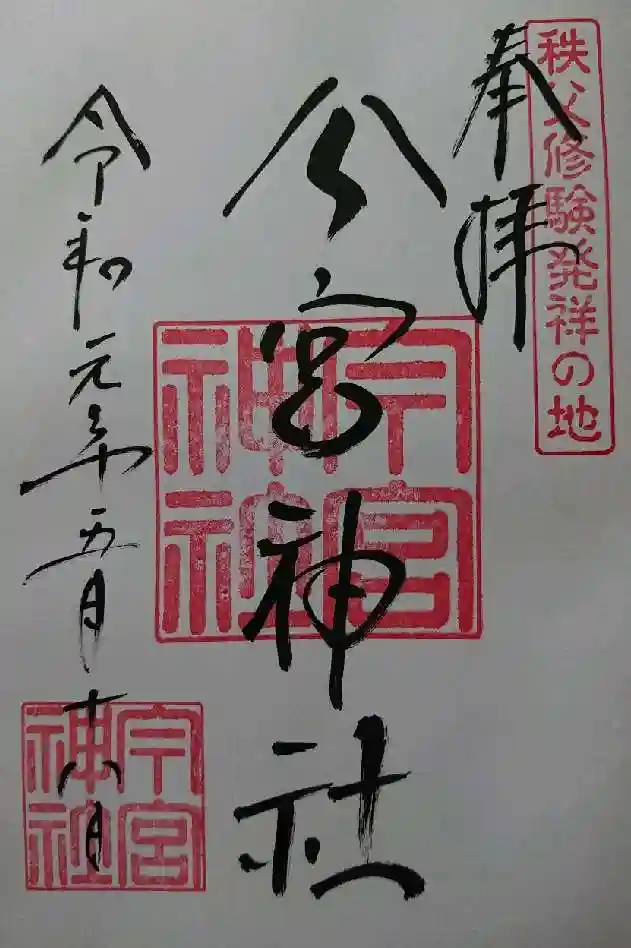 秩父修験発祥の地
奉拝
今宮神社
今宮
神社
令和元年五月十八日
今宮
神社